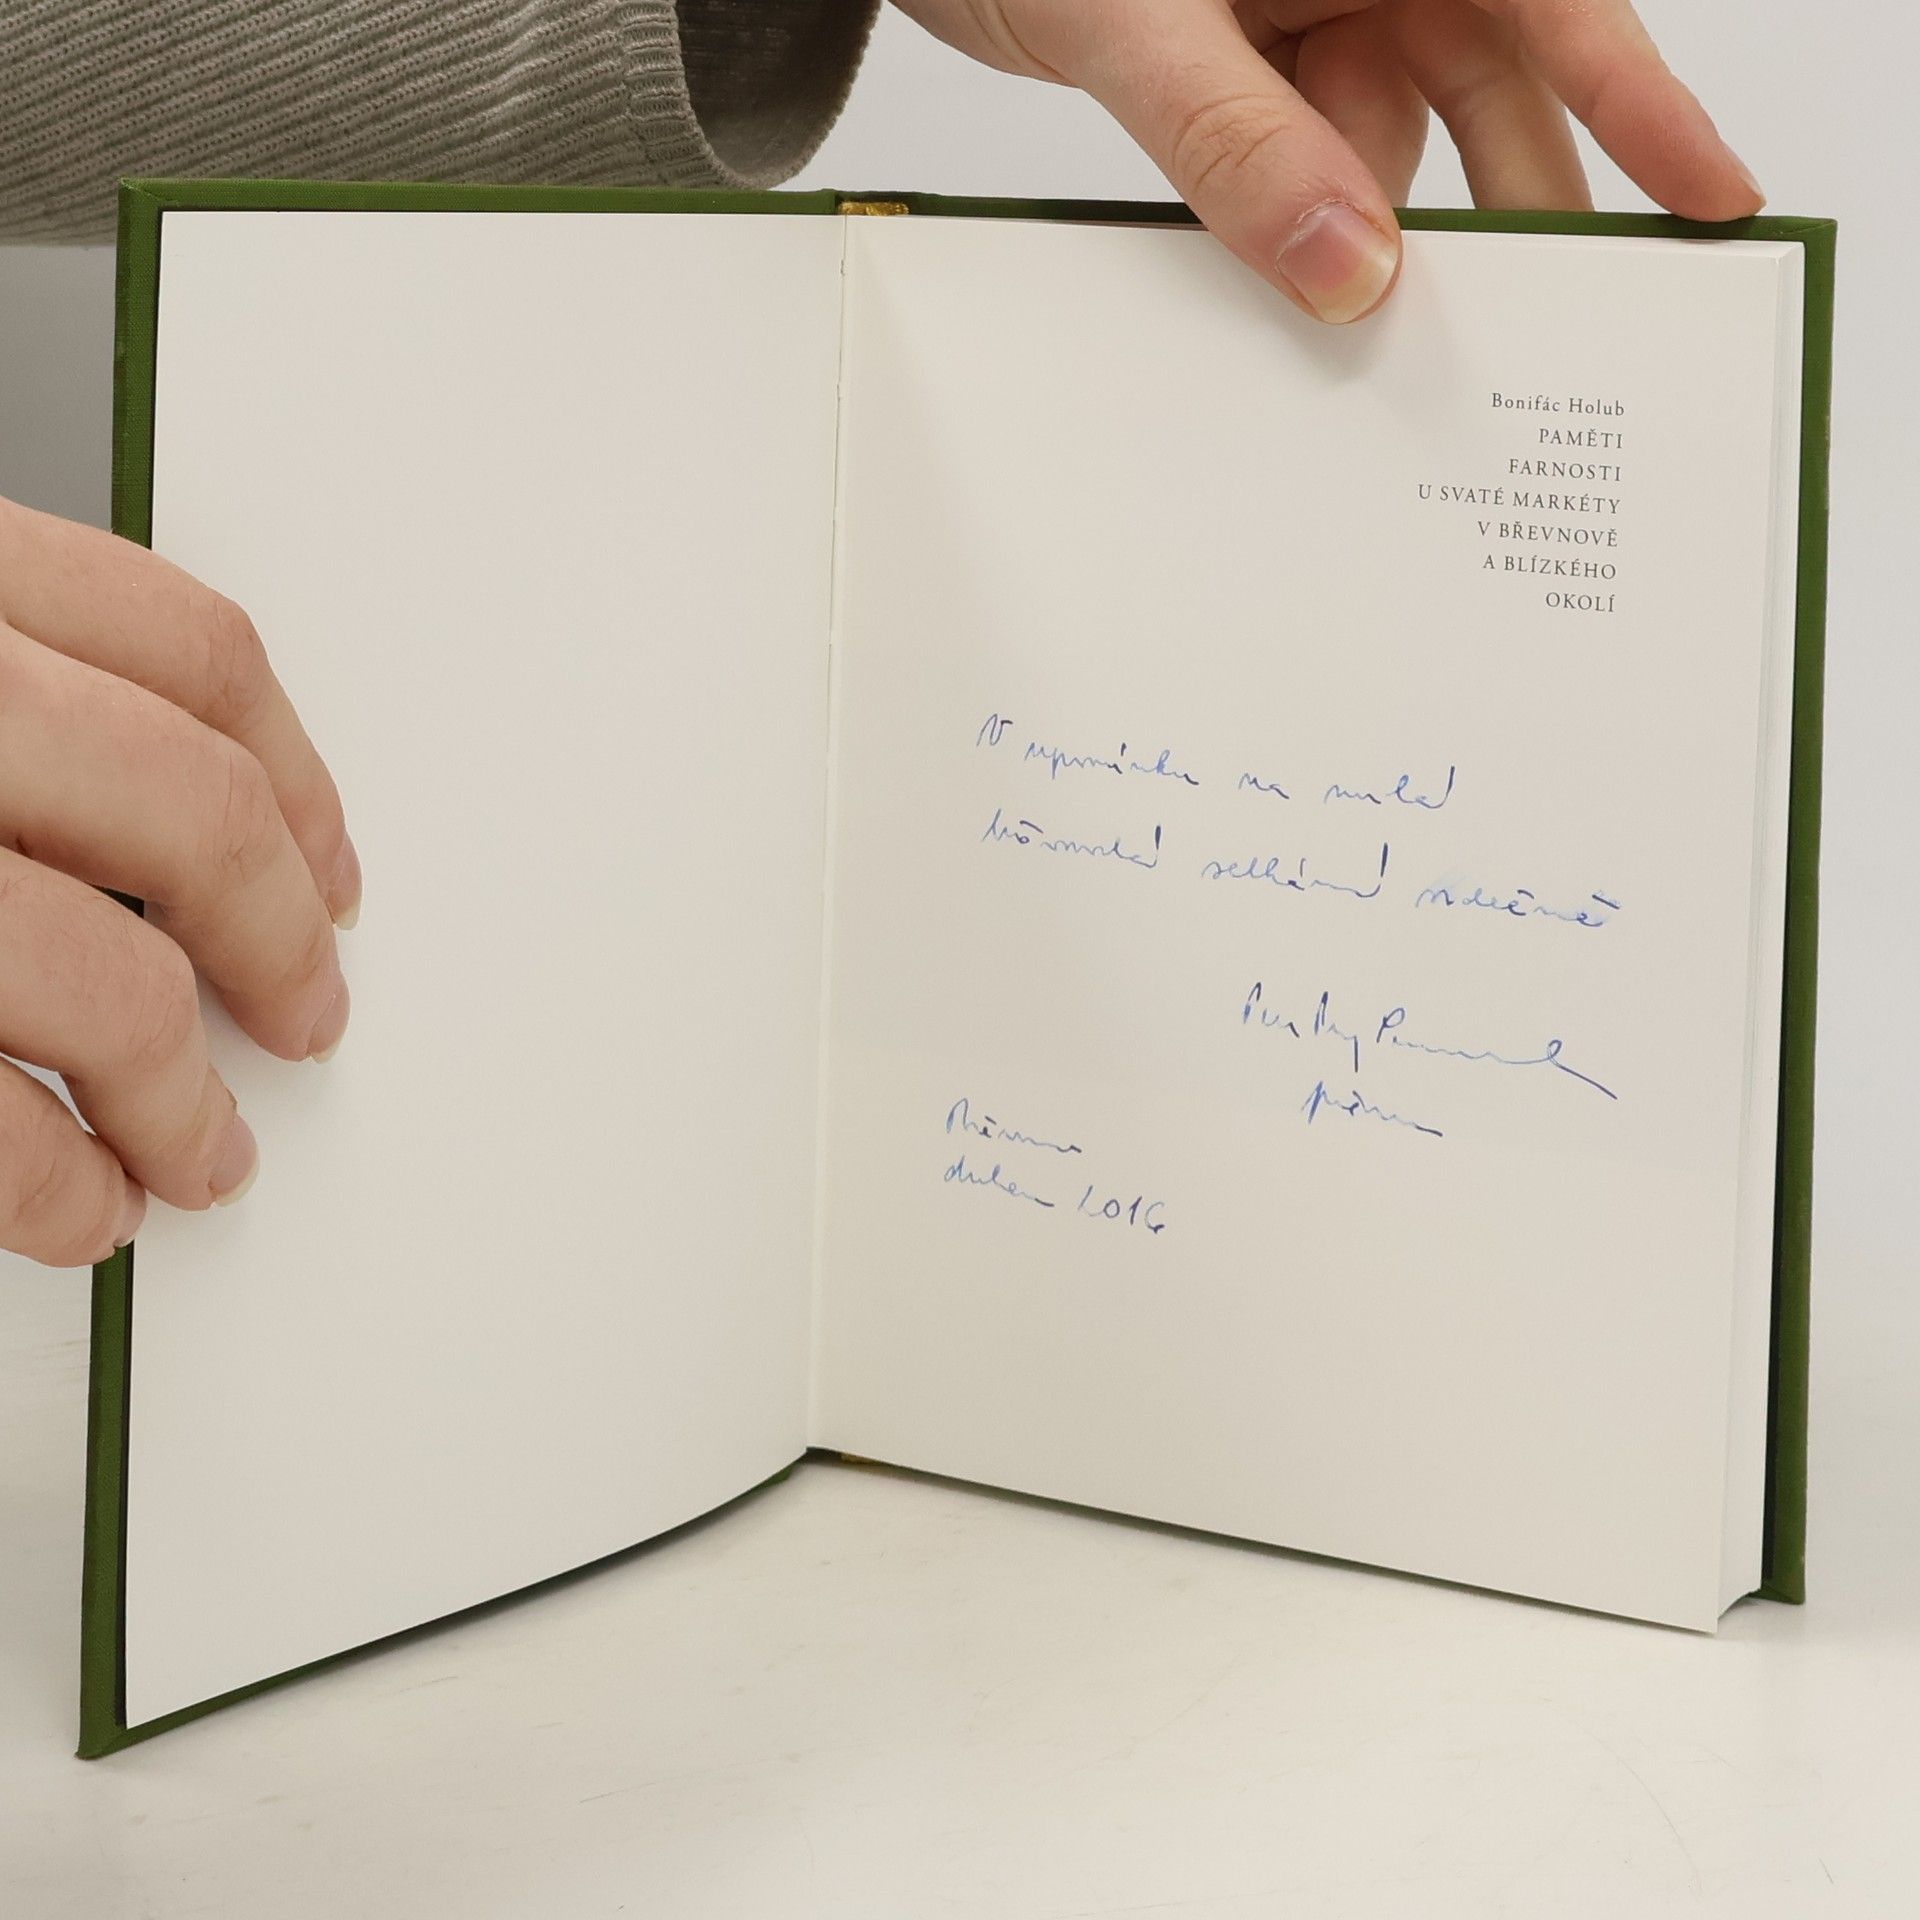 Bonifác Holub
PAMĚTI
FARNOSTI
U SVATÉ MARKÉTY
V BŘEVNOVĚ
A BLÍZKÉHO
OKOLÍ
V upomínku na milá
setkání srdečně
duben 2016